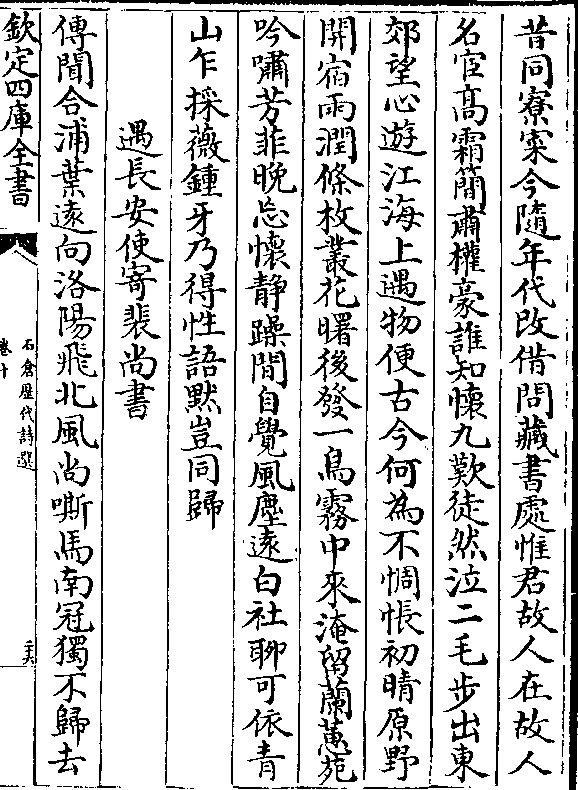 昔同寮寀今隨年代改借問藏書處惟君故人在故人
名宦髙霜簡肅權豪誰知懷九歎徒然泣二毛步出東
郊望心遊江海上遇物便古今何為不惆悵初晴原野
開宿雨潤條枚叢花曙後發一鳥霧中來淹留蘭蕙苑
吟嘯芳菲晚忘懷静躁間自覺風塵遠白社聊可依青
山乍採薇鍾牙乃得性語黙豈同歸
遇長安使寄裴尚書
傳聞合浦葉逺向洛陽飛北風尚嘶馬南冠獨不歸去
欽定四庫全書
石倉歷代詩選
卷十
二六